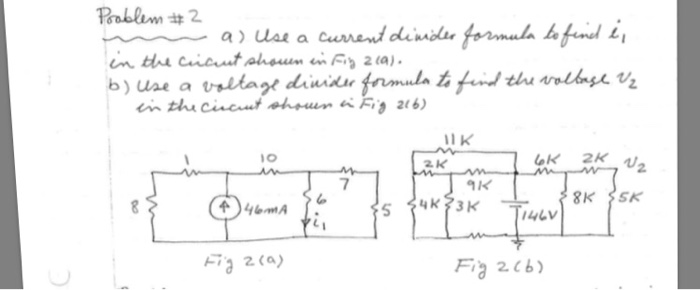 Problem # 2
a) Use a current divider formula to find i1
in the circuit shown in Fig 2(a).
b) Use a voltage divider formula to find the voltage V2
in the circuit shown in Fig 2(b)
11K
1 10 2K 6K 2K V2
7 9K
8 46mA 6 i1 5 4K 3K 146V 8K 5K
Fig 2(a) Fig 2(b)